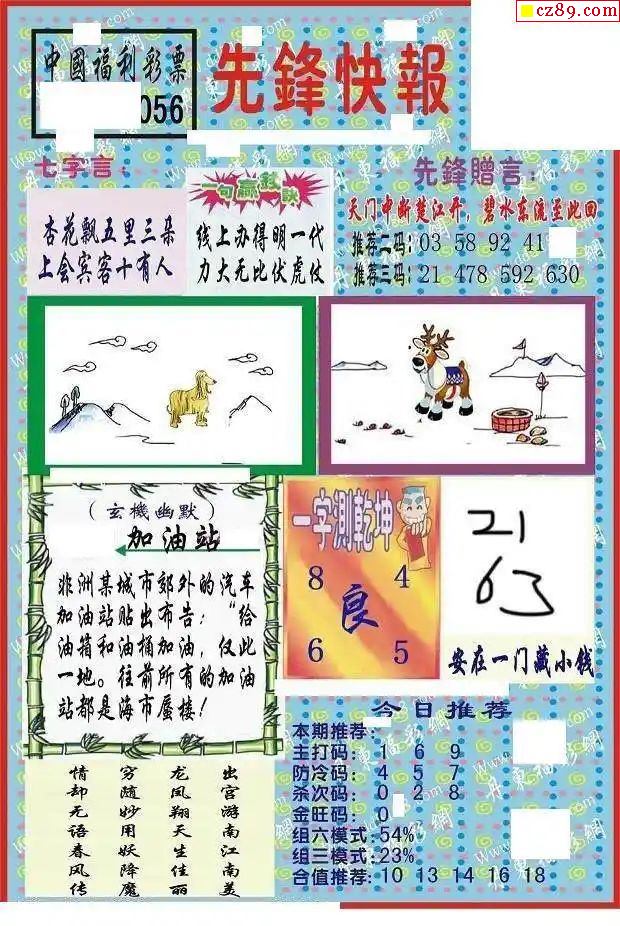 cz89.com
中國福利彩票
056
先鋒快報
七字言:
杏花飘五里三朵
上会宾客十有人
一句赢钱訣
线上办得明一代
力大无比伏虎仗
先鋒贈言:
天门中断楚江开,碧水东流至此回
推荐二码: 03 58 92 41
推荐三码: 21 478 592 630
(玄機幽默)
加油站
非洲某城市郊外的汽车
加油站贴出布告:“给
油箱和油桶加油,仅此
一地。往前所有的加油
站都是海市蜃楼!
一字測乾坤
8 4
良
6 5
21
63
安在一门藏小钱
今日推荐
本期推荐:
主打码: 1 6 9
防冷码: 4 5 7
杀次码: 0 2 8
金旺码: 0
组六模式: 54%
组三模式: 23%
合值推荐: 10 13 14 16 18
情 穷 龙 出
却 随 凤 宫
无 妙 翔 游
语 用 天 南
春 妖 生 江
风 降 佳 南
传 魔 丽 美